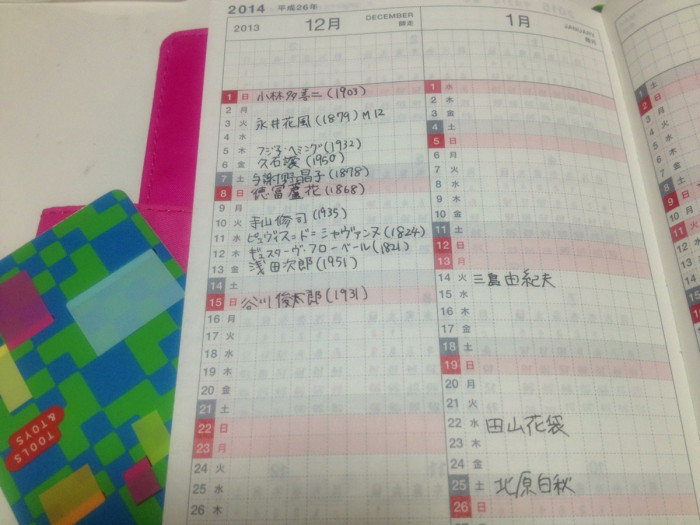 2014 平成26年
2013 12月 DECEMBER 師走
1 日 小林多喜二(1903)
2 月
3 火 永井花風(1879) M12
4 水
5 木 フジ子・ヘミング(1932)
6 金 久石譲(1950)
7 土 与謝野晶子(1878)
8 日 徳冨蘆花(1868)
9 月
10 火 寺山修司(1935)
11 水 ピュヴィス=ド=シャヴァンヌ(1824)
12 木 ギュスターヴ・フローベール(1821)
13 金 浅田次郎(1951)
14 土
15 日 谷川俊太郎(1931)
16 月
17 火
18 水
19 木
20 金
21 土
22 日
23 月
24 火
25 水
26 木
1月 JANUARY 睦月
1 水
2 木
3 金
4 土
5 日
6 月
7 火
8 水
9 木
10 金
11 土
12 日
13 月
14 火 三島由紀夫
15 水
16 木
17 金
18 土
19 日
20 月
21 火
22 水 田山花袋
23 木
24 金
25 土 北原白秋
26 日
1 土
2 日
3 月
4 火
5 水
6 木
7 金
8 土
9 日
10 月
11 火
12 水
13 木
TOOLS
& TOYS